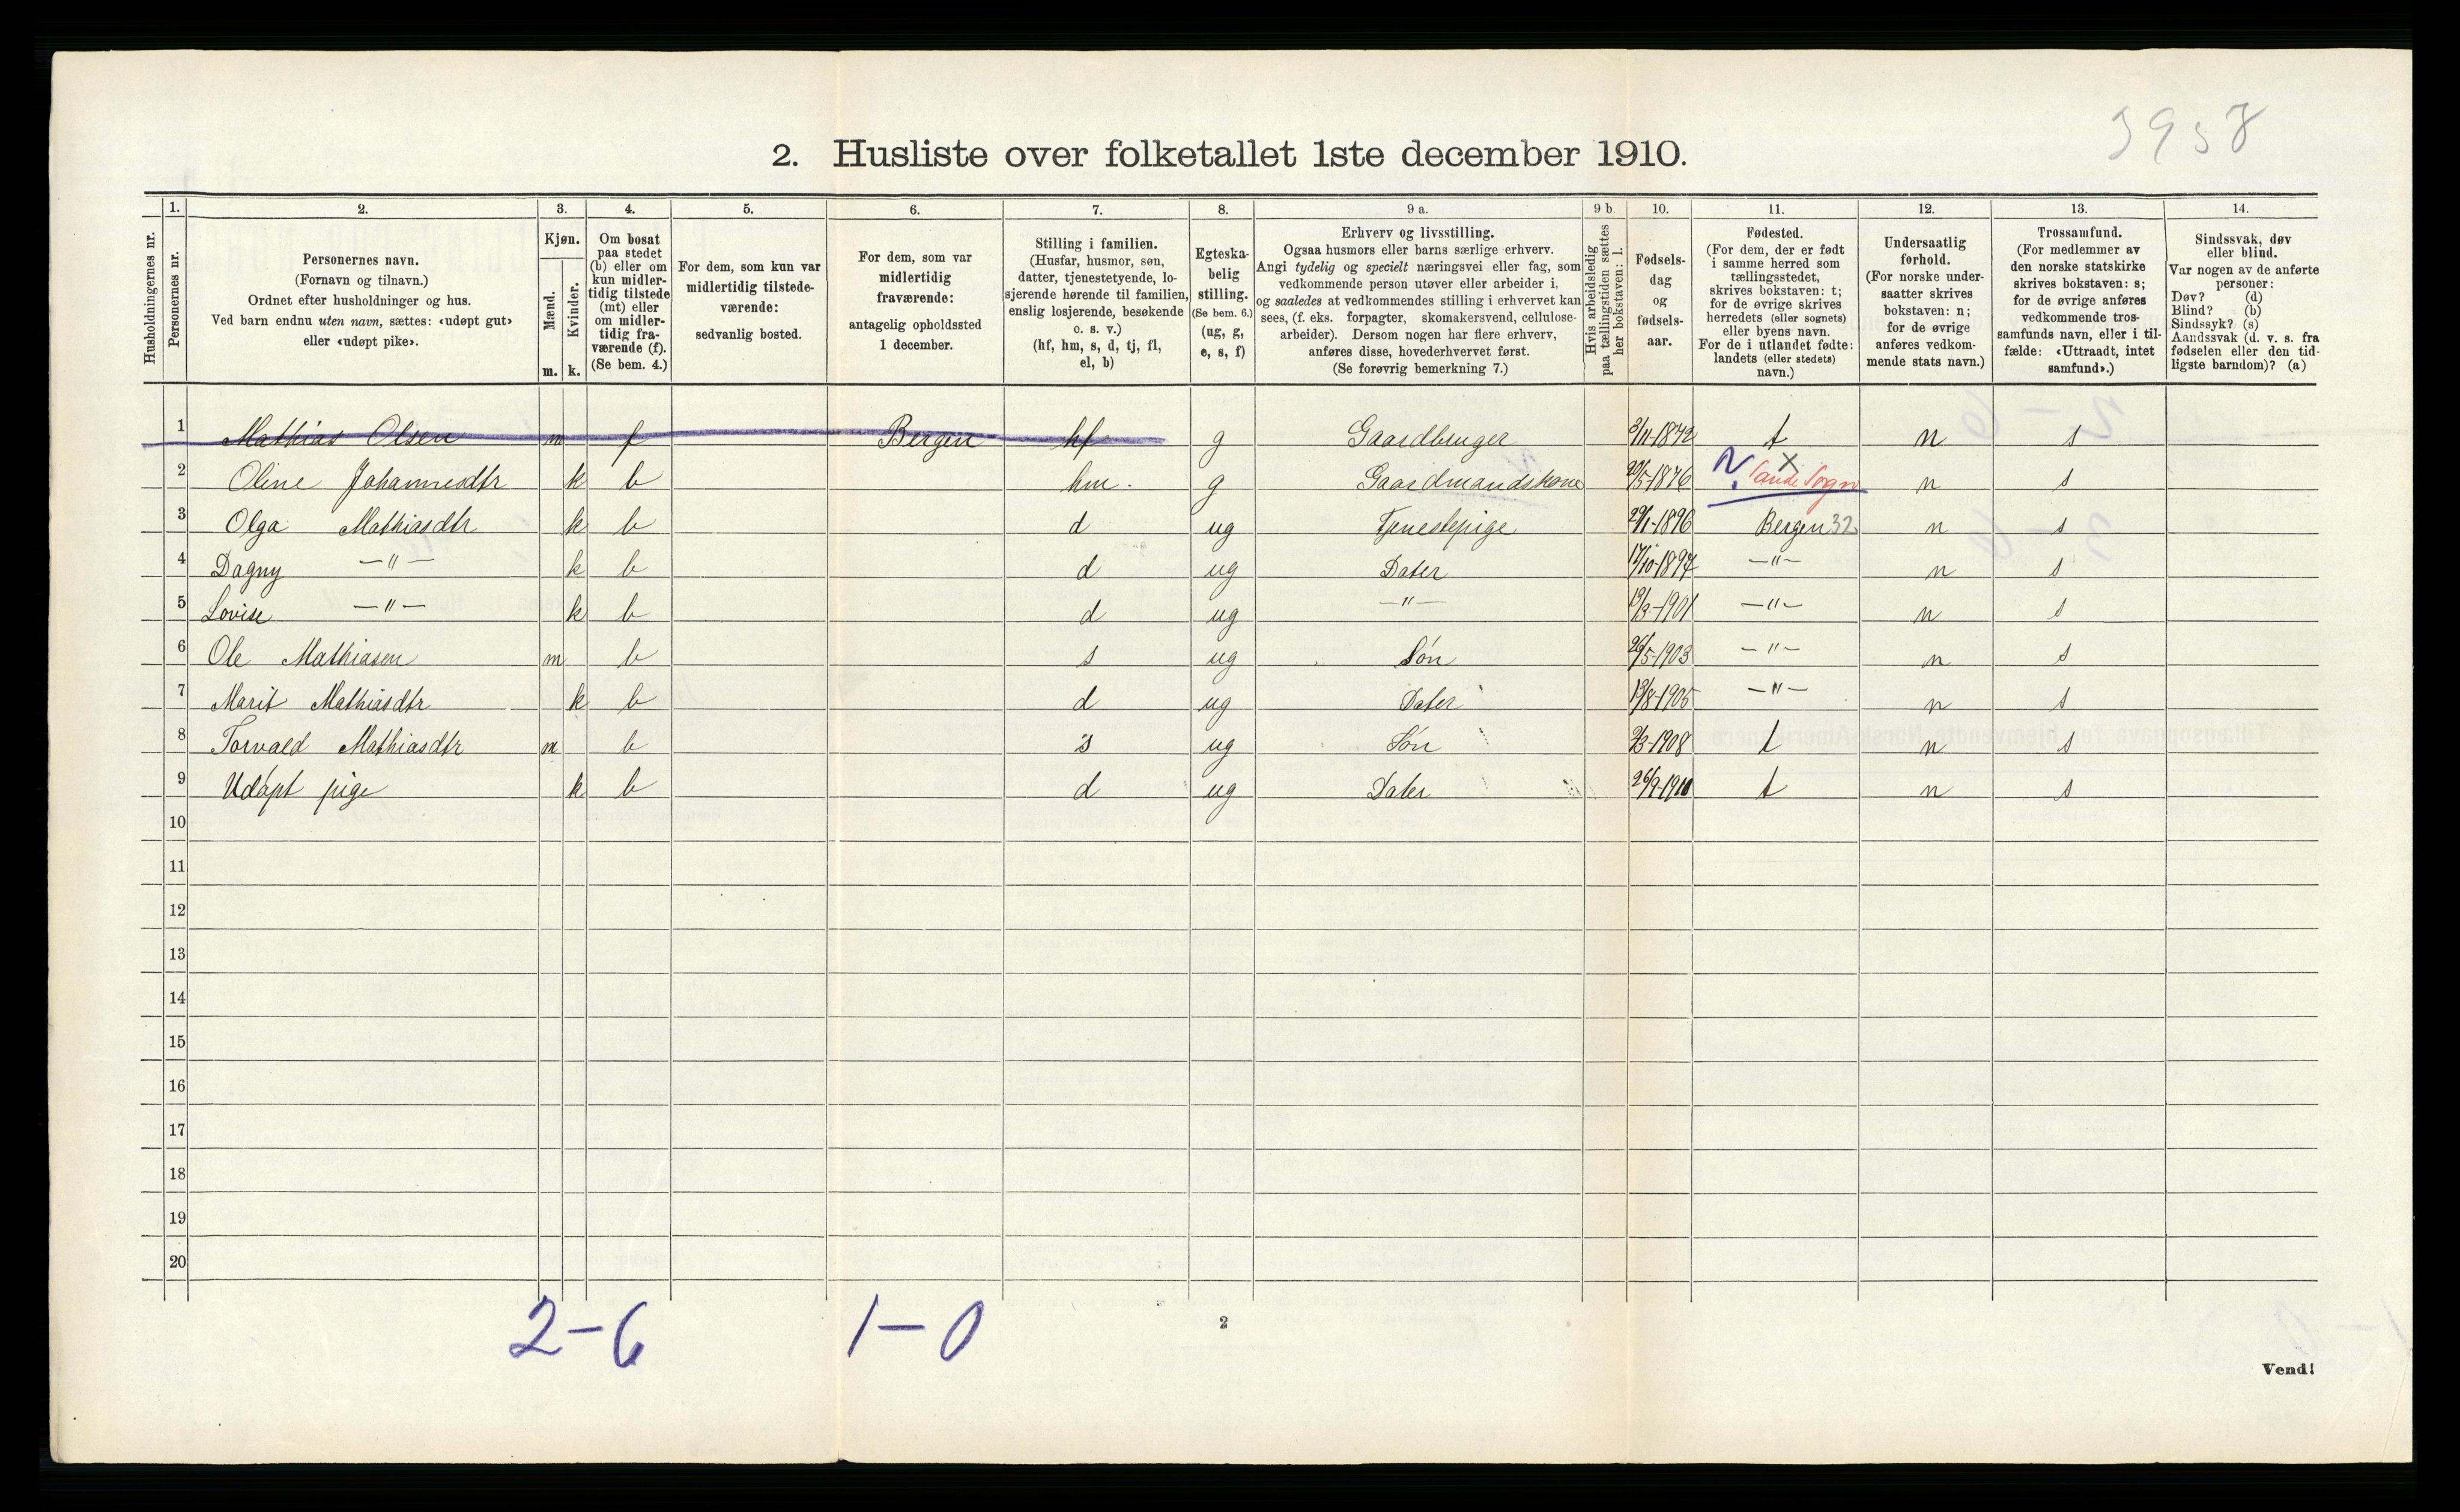 3958
2. Husliste over folketallet 1ste december 1910.
Husholdningernes nr.
1.
Personernes nr.
2.
Personernes navn.
(Fornavn og tilnavn.)
Ordnet efter husholdninger og hus.
Ved barn endnu uten navn, sættes: «udøpt gut»
eller «udøpt pike».
3.
Kjøn.
Mænd.
Kvinder.
m. k.
4.
Om bosat
paa stedet
(b) eller om
kun midler-
tidig tilstede
(mt) eller
om midler-
tidig fra-
værende (f).
(Se bem. 4.)
5.
For dem, som kun var
midlertidig tilstede-
værende:
sedvanlig bosted.
6.
For dem, som var
midlertidig
fraværende:
antagelig opholdssted
1 december.
7.
Stilling i familien.
(Husfar, husmor, søn,
datter, tjenestetyende, lo-
sjerende hørende til familien,
enslig losjerende, besøkende
o. s. v.)
(hf, hm, s, d, tj, fl,
el, b)
8.
Egteska-
belig
stilling.
(Se bem. 6.)
(ug, g,
e, s, f)
9 a.
Erhverv og livsstilling.
Ogsaa husmors eller barns særlige erhverv.
Angi tydelig og specielt næringsvei eller fag, som
vedkommende person utøver eller arbeider i,
og saaledes at vedkommendes stilling i erhvervet kan
sees, (f. eks. forpagter, skomakersvend, cellulose-
arbeider). Dersom nogen har flere erhverv,
anføres disse, hovederhvervet først.
(Se forøvrig bemerkning 7.)
9 b.
Hvis arbeidsledig
paa tællingstiden sættes
her bokstaven: l.
10.
Fødsels-
dag
og
fødsels-
aar.
11.
Fødested.
(For dem, der er født
i samme herred som
tællingsstedet,
skrives bokstaven: t;
for de øvrige skrives
herredets (eller sognets)
eller byens navn.
For de i utlandet fødte:
landets (eller stedets)
navn.)
12.
Undersaatlig
forhold.
(For norske under-
saatter skrives
bokstaven: n;
for de øvrige
anføres vedkom-
mende stats navn.)
13.
Trossamfund.
(For medlemmer av
den norske statskirke
skrives bokstaven: s;
for de øvrige anføres
vedkommende tros-
samfunds navn, eller i til-
fælde: «Uttraadt, intet
samfund».)
14.
Sindssvak, døv
eller blind.
Var nogen av de anførte
personer:
Døv? (d)
Blind? (b)
Sindssyk? (s)
Aandssvak (d. v. s. fra
fødselen eller den tid-
ligste barndom)? (a)
1 Mathias Olsen m f Bergen hf g Gaardbruger 3/11-1872 t n s
2 Oline Johannesdtr k b hm. g Gaardmandskone 20/5-1876 Sande Sogn n s
3 Olga Mathiasdtr k b d ug Tjenestepige 29/1-1896 Bergen 32 n s
4 Dagny —"— k b d ug Dater 17/10-1897 —"— n s
5 Lovise —"— k b d ug —"— 19/3-1901 —"— n s
6 Ole Mathiasen m b s ug Søn 26/5-1903 —"— n s
7 Marit Mathiasdtr k b d ug Dater 13/8-1905 —"— n s
8 Torvald Mathiasdtr m b s ug Søn 9/3-1908 t n s
9 Udøpt pige k b d ug Dater 26/9-1910 t n s
10
11
12
13
14
15
16
17
18
19
20
2-6 1-0
2
Vend!